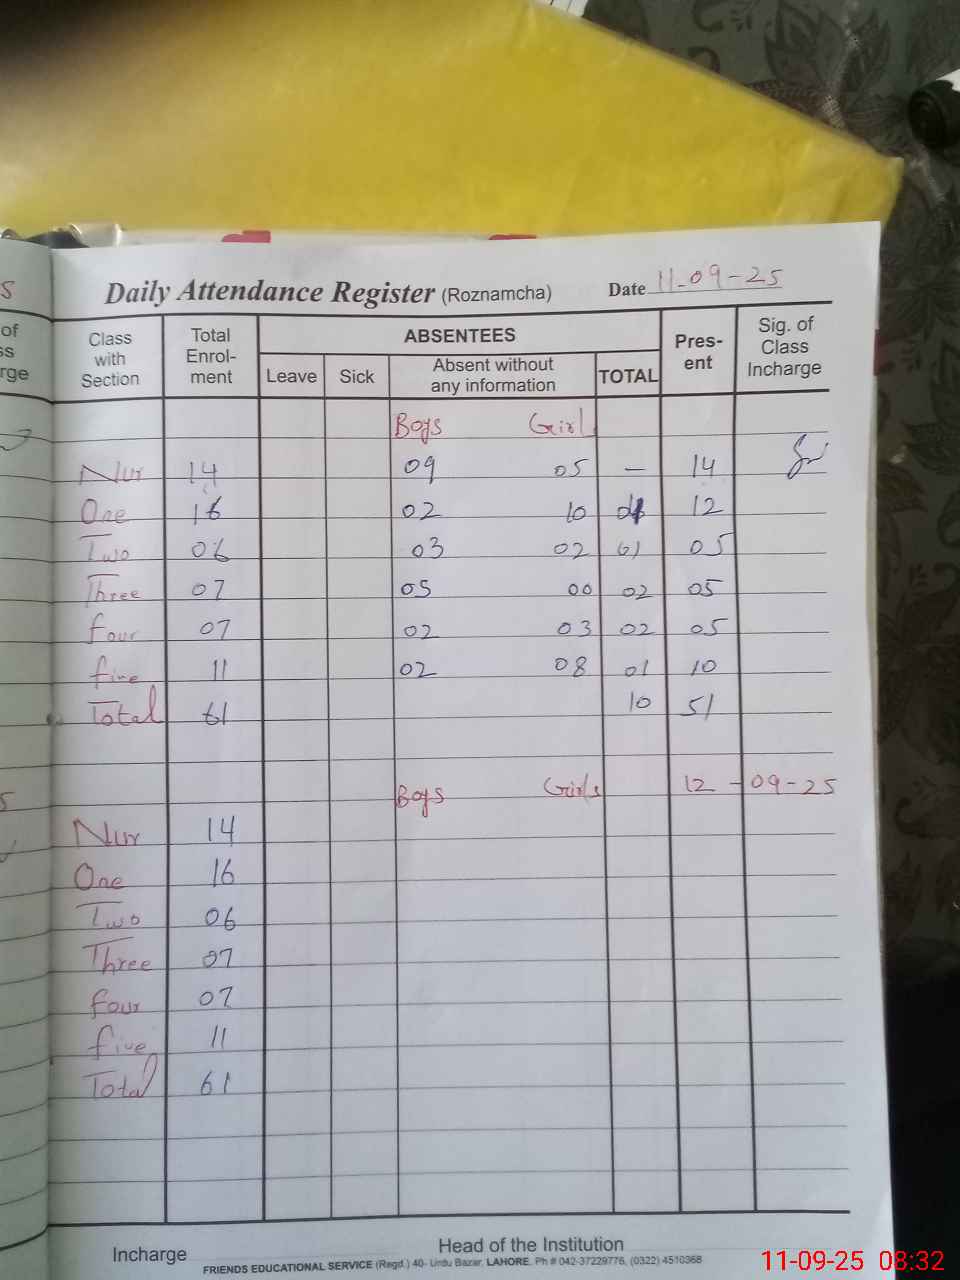 Daily Attendance Register (Roznamcha) Date 11-09-25
Class with Section Total Enrol-ment ABSENTEES Pres-ent Sig. of Class Incharge
Leave Sick Absent without any information TOTAL
Boys Girl
Nur 14 09 05 – 14
One 16 02 10 04 12
Two 06 03 02 01 05
Three 07 05 00 02 05
four 07 02 03 02 05
five 11 02 08 01 10
Total 61 10 51
Boys Girls 12-09-25
Nur 14
One 16
Two 06
Three 07
four 07
five 11
Total 61
Incharge Head of the Institution
FRIENDS EDUCATIONAL SERVICE (Regd.) 40- Urdu Bazar, LAHORE. Ph # 042-37229776, (0322) 4510368
11-09-25 08:32